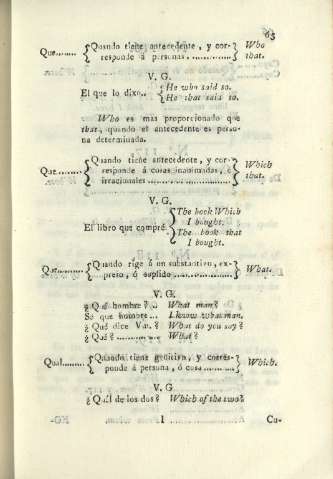 65
Que........ {Quando tiene antecedente, y cor-} Who
responde á personas, ............. that.
V. G.
El que lo dixo.. {He who said so.
He that said so.
Who es mas proporcionado que
that, quando el antecedente es perso-
na determinada.
Que........ {Quando tiene antecedente, y cor-} Which
responde á cosas inanimadas, é that.
irracionales .....................
V. G.
{The book Which
I bought.
El libro que compré. The book that
I bought.
Que.......... {Quando rige á un substantivo, ex-} What.
preso, ó suplido ................
V. G.
¿ Qué hombre ?... What man?
Sé que hombre... I know what man.
¿ Qué dice Vm. ? What do you say?
¿ Qué ? ............... What?
Qual....... {Quando tiene genitivo, y corres-} Which.
ponde á persona, ó cosa .........
V. G
¿ Quál de los dos? Which of the two?
I Cu-